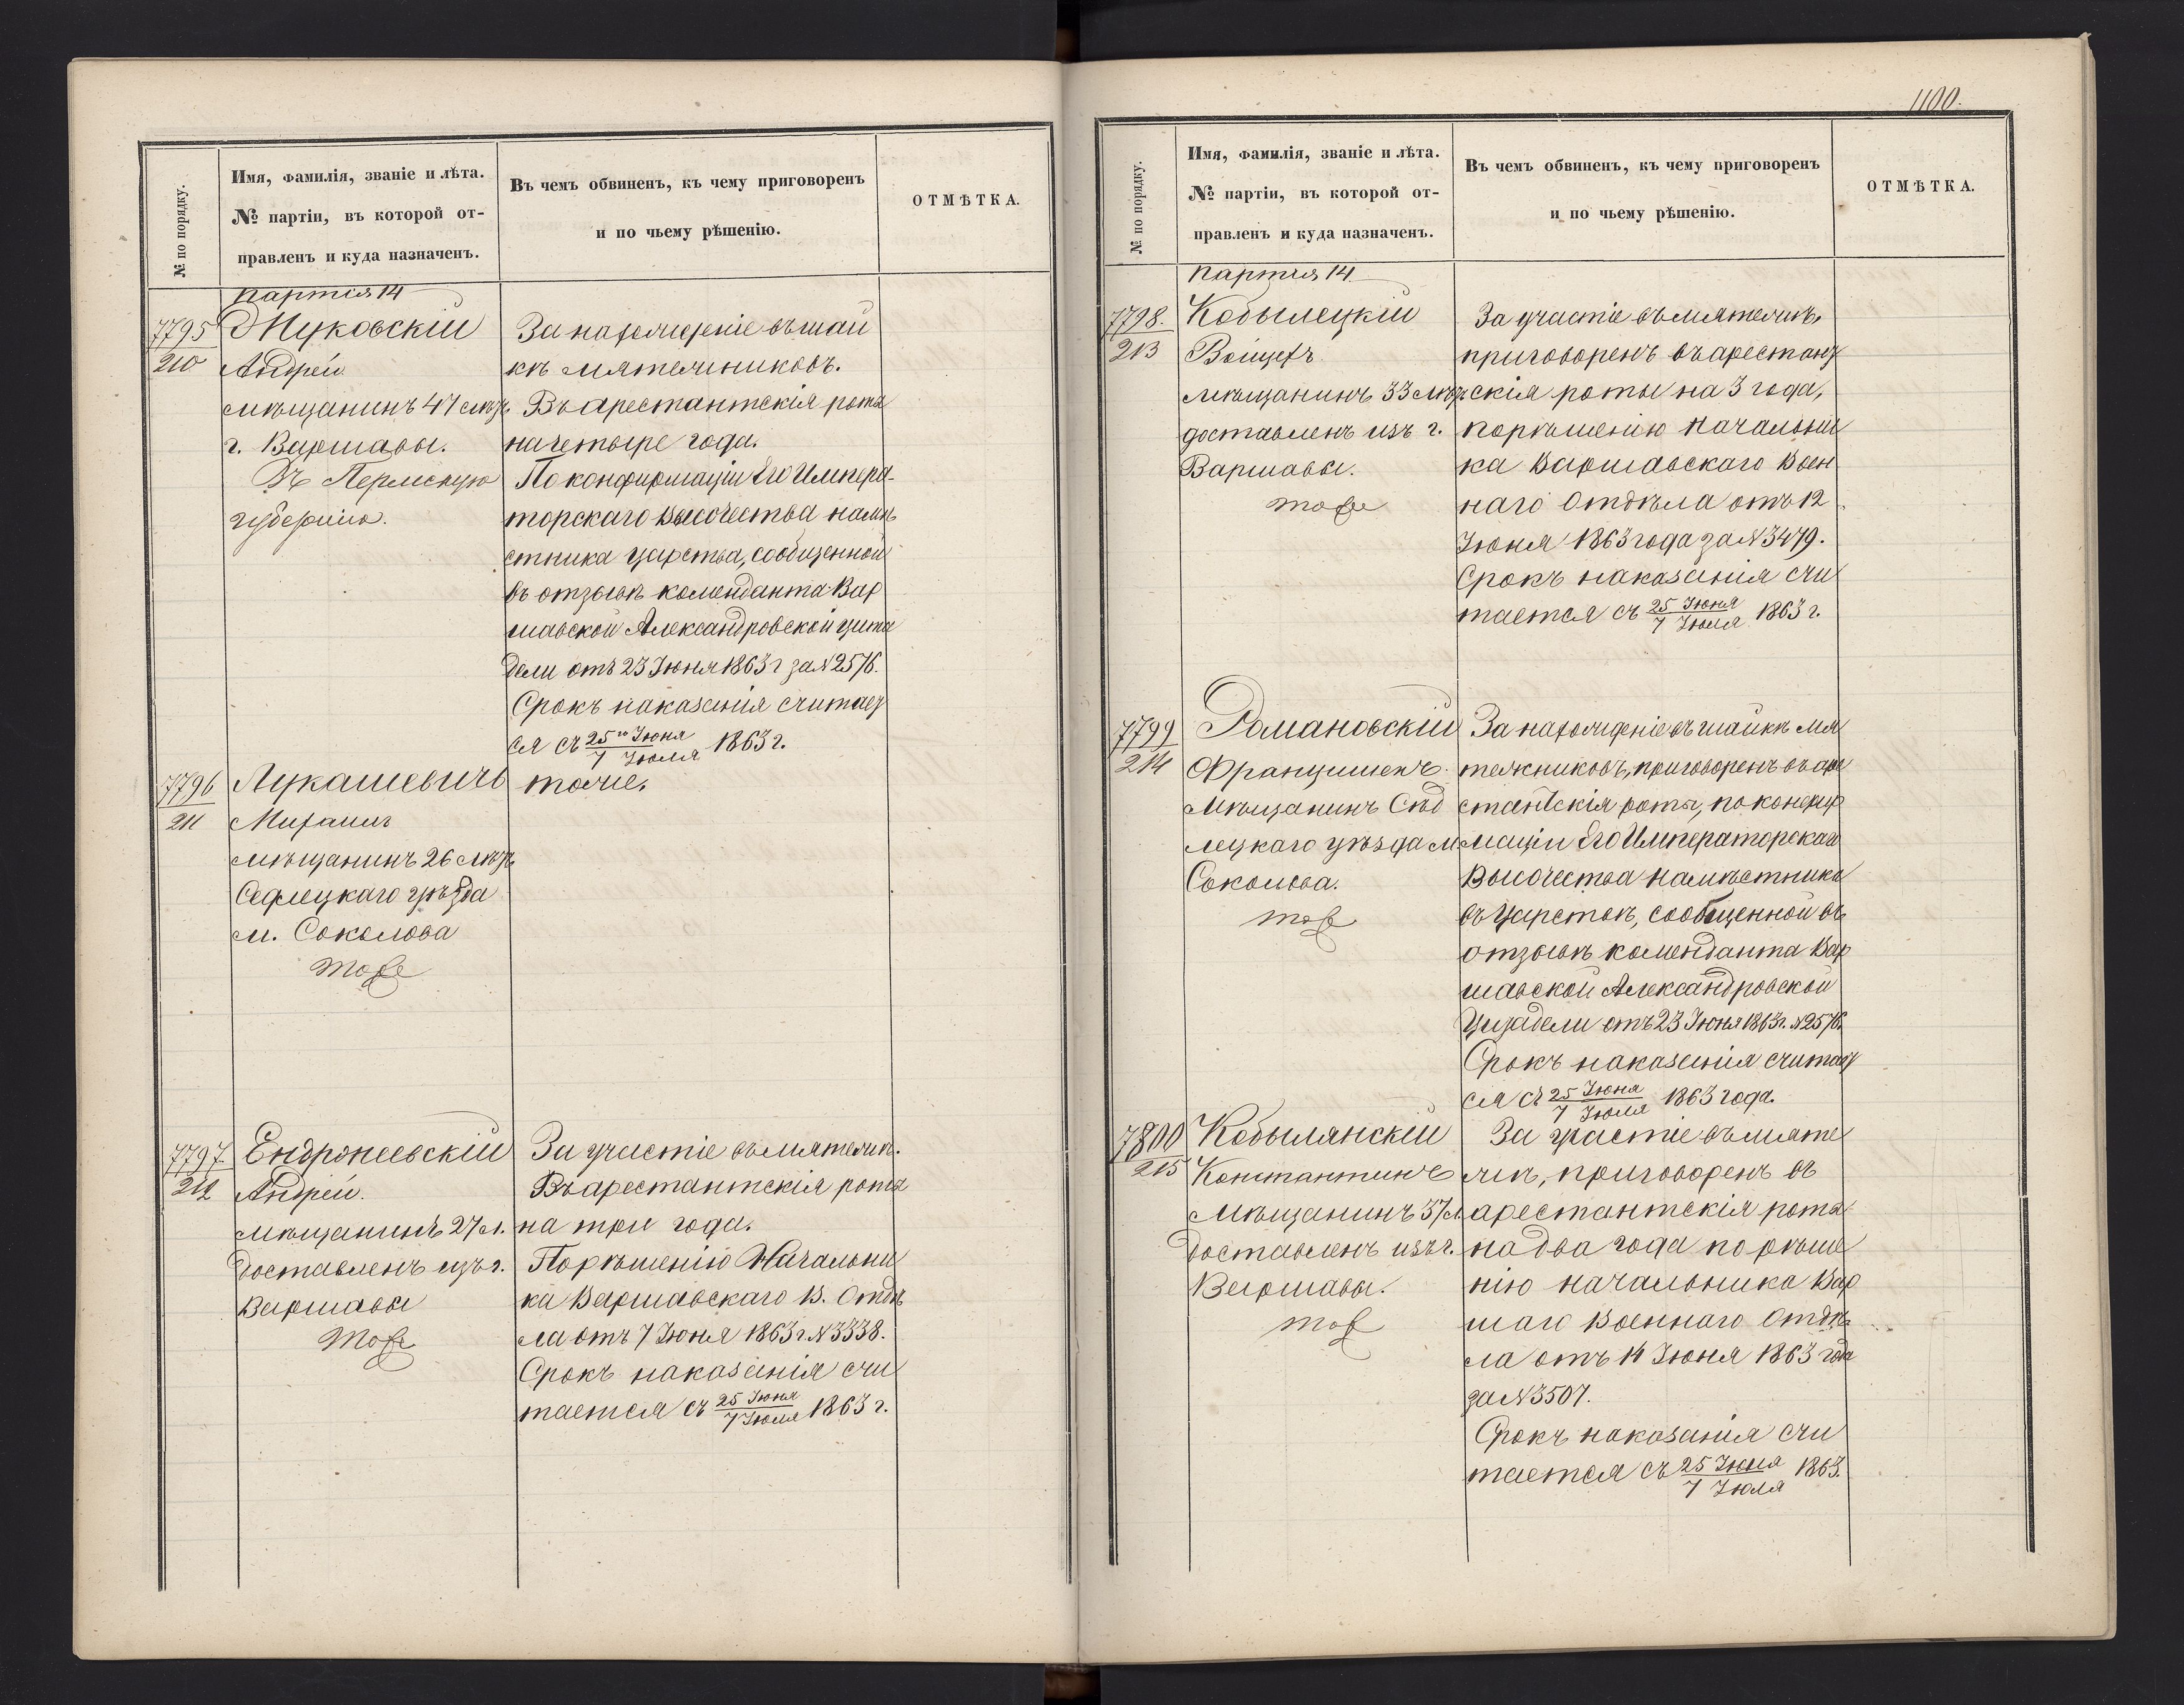 № по порядку.
Имя, фамилія, званіе и лѣта.
№ партіи, въ которой от-
правленъ и куда назначенъ.
Въ чемъ обвиненъ, къ чему приговоренъ
и по чьему рѣшенію.
ОТМѢТКА.
партія 14
7795
210
Жуковскій
Андрей
мѣщанинъ 47 лѣтъ
г. Варшавы.
Въ Пермскую
губернію.
За нахожденіе въ шай
кѣ мятежниковъ.
Въ арестантскія роты
на четыре года.
По конфирмаціи Его Импера-
торскаго Высочества намѣ
стника царства, сообщенной
въ отзывѣ коменданта Вар
шавской Александровской цита
дели отъ 23 Іюня 1863 г за N 2576.
Срокъ наказанія считает
ся съ 25го Іюня / 7 Іюля 1863 г.
7796
211
Лукашевичъ
Михаилъ
мѣщанинъ 26 лѣтъ
Седлецкаго уѣзда
м. Соколова
тоже
тоже.
7797.
212
Ендржеевскій
Андрей.
мѣщанинъ 27 л.
доставленъ изъ г.
Варшавы
тоже
За участіе въ мятежѣ.
Въ арестантскія роты
на три года.
По рѣшенію Начальни
ка Варшавскаго В. Отдѣ
ла отъ 7 Іюня 1863 г N 3338.
Срокъ наказанія счи
тается съ 25 Іюня / 7 Іюля 1863 г.
1100.
№ по порядку.
Имя, фамилія, званіе и лѣта.
№ партіи, въ которой от-
правленъ и куда назначенъ.
Въ чемъ обвиненъ, къ чему приговоренъ
и по чьему рѣшенію.
ОТМѢТКА.
партія 14
7798.
213
Кобылецкій
Войцехъ
мѣщанинъ 33 лѣтъ
доставленъ изъ г.
Варшавы.
тоже
За участіе въ мятежѣ,
приговоренъ въ арестант
скія роты на 3 года,
по рѣшенію Начальни
ка Варшавскаго Воен
наго Отдѣла отъ 12
Іюня 1863 года за N 3479.
Срокъ наказанія счи
тается съ 25 Іюня / 7 Іюля 1863 г.
7799
214
Романовскій
Францишекъ
мѣщанинъ Сѣд
лецкаго уѣзда м.
Соколова.
тоже
За нахожденіе въ шайкѣ мя
тежниковъ, приговоренъ въ аре
стантскія роты, по конфир
маціи Его Императорскаго
Высочества намѣстника
въ Царствѣ, сообщенной въ
отзывѣ коменданта Вар
шавской Александровской
Цитадели отъ 23 Іюня 1863 г. N 2576.
Срокъ наказанія считает
ся съ 25 Іюня / 7 Іюля 1863 года.
7800
215
Кобылянскій
Константинъ
мѣщанинъ 37 л.
доставленъ изъ г.
Варшавы.
тоже
За участіе въ мяте
жѣ, приговоренъ въ
арестантскія роты
на два года по рѣше
нію начальника Вар
шаго Военнаго Отдѣ
ла отъ 14 Іюня 1863 года
за N 3507.
Срокъ наказанія счи
тается съ 25 Іюня / 7 Іюля 1863.